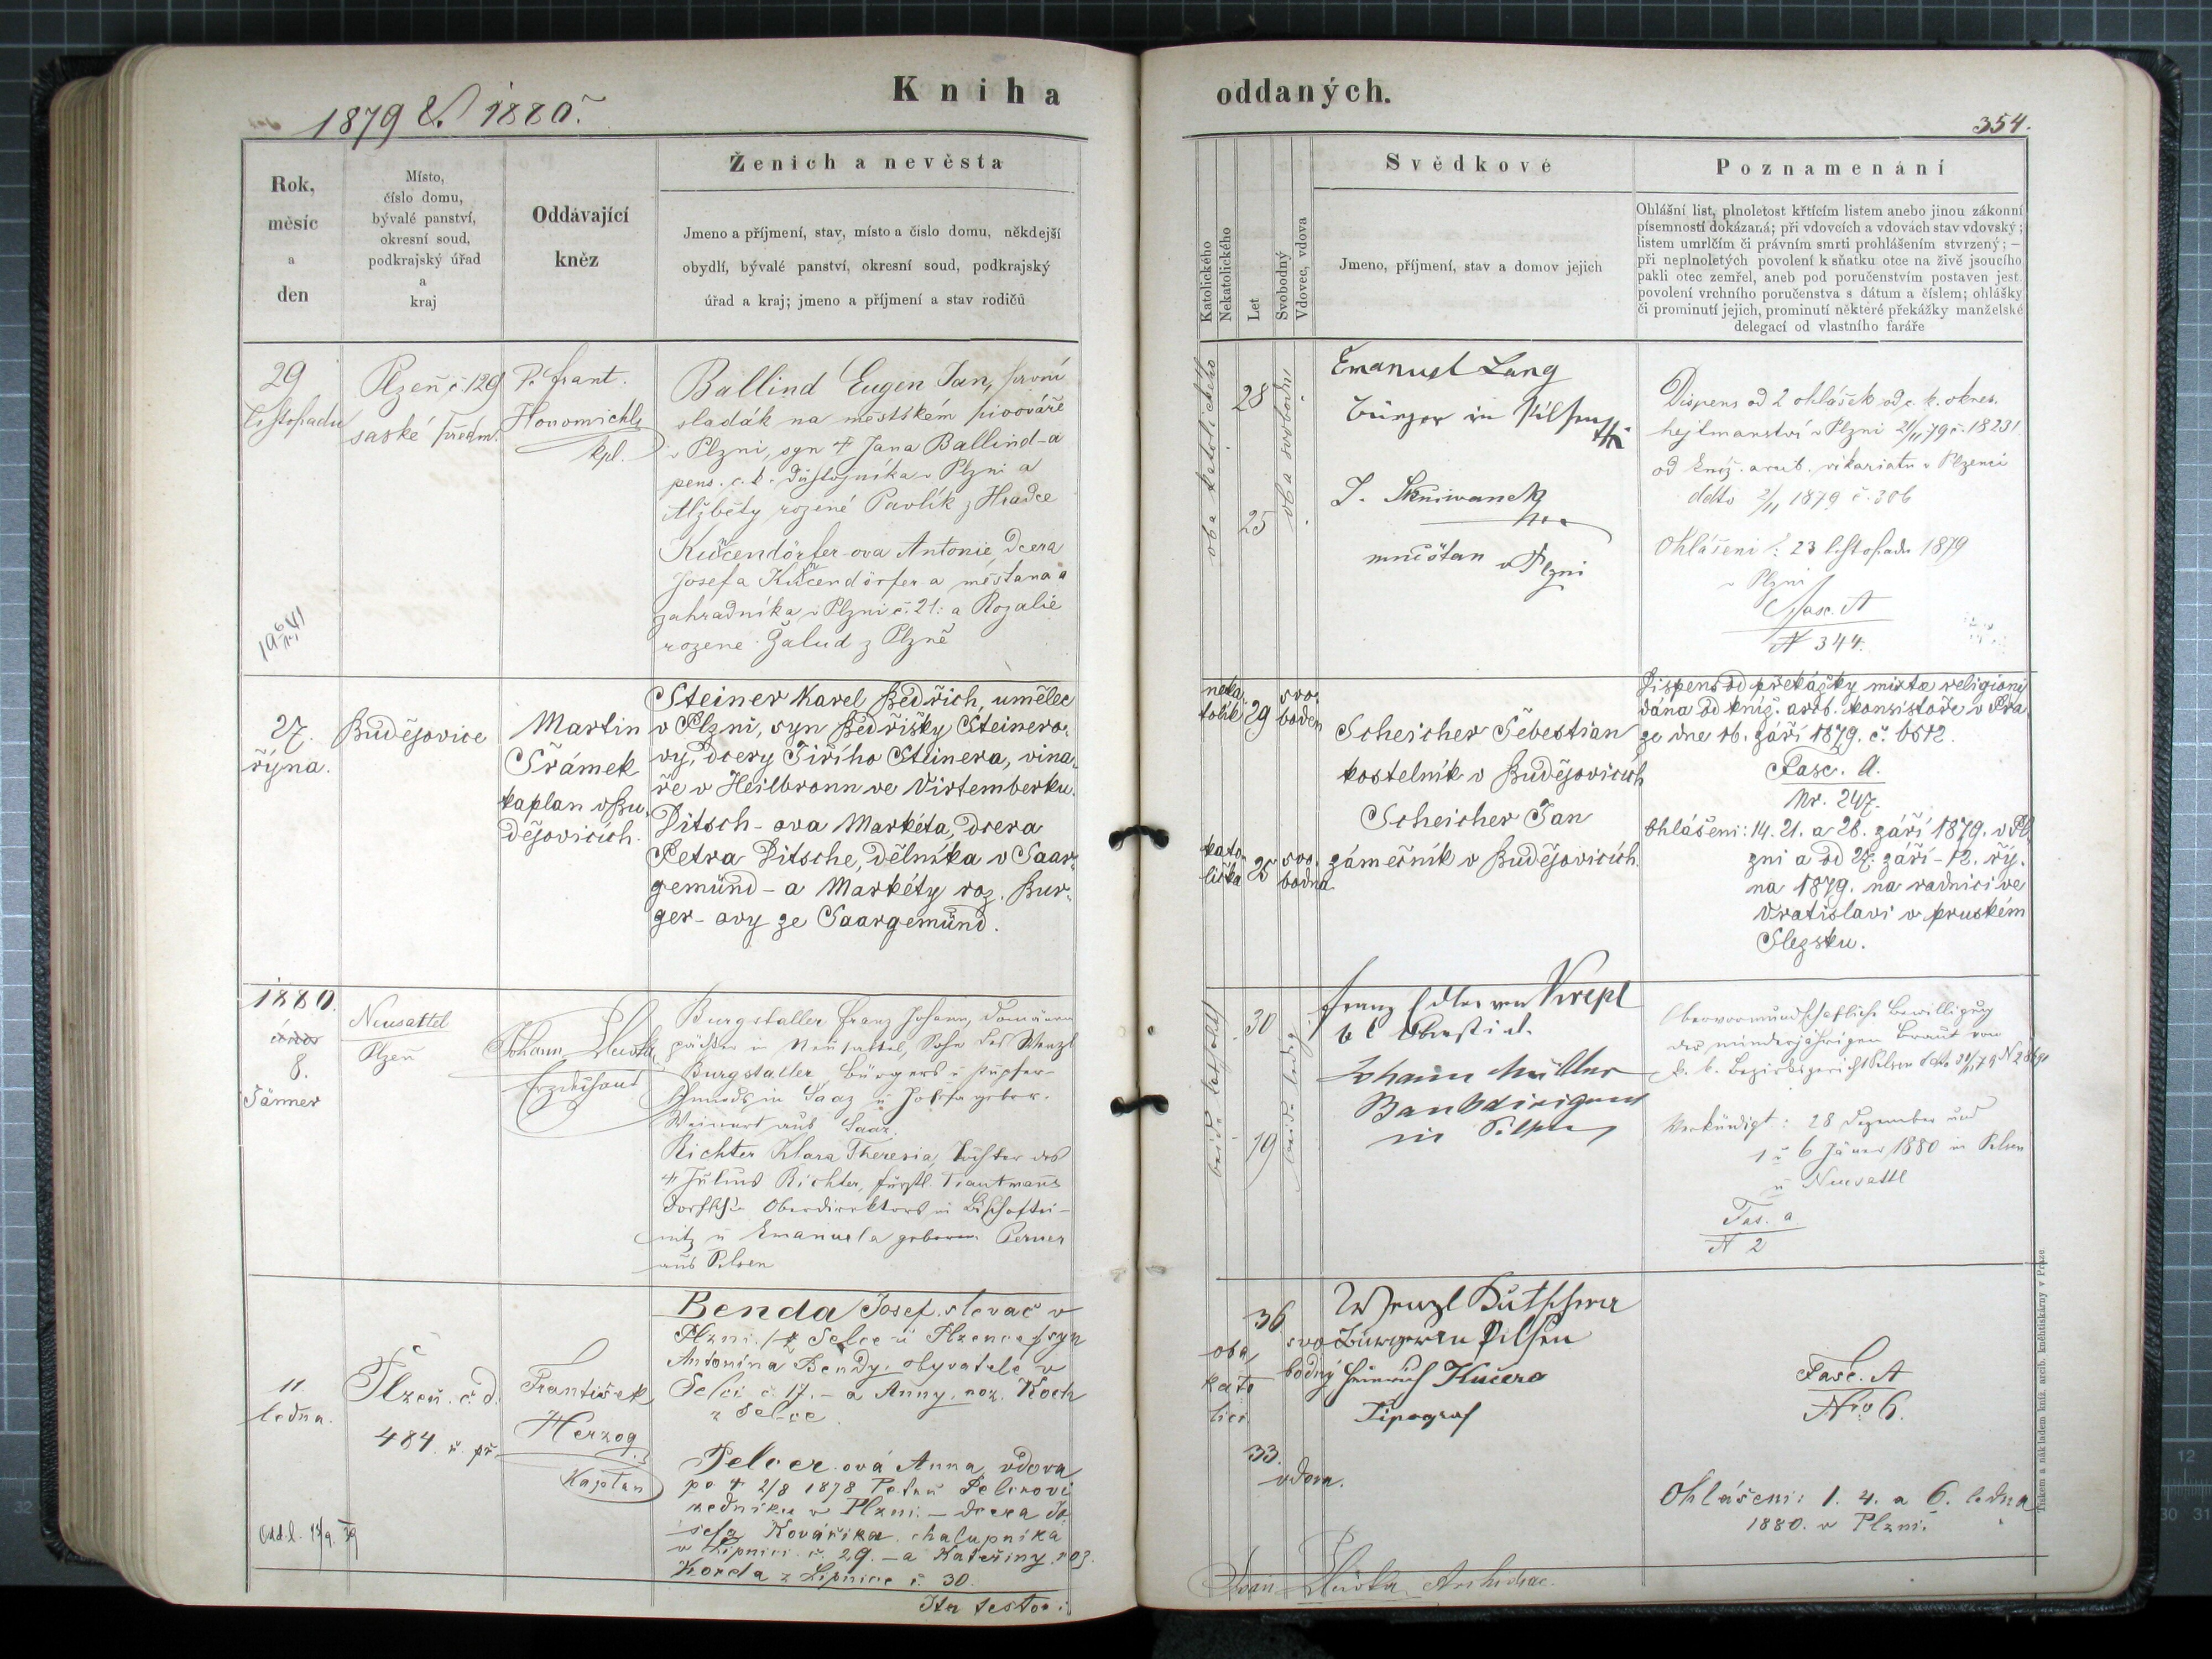 1879 & 1880.
Kniha
oddaných.
354.
Rok,
měsíc
a
den
Místo,
číslo domu,
bývalé panství,
okresní soud,
podkrajský úřad
a
kraj
Oddávající
kněz
Ženich a nevěsta
Jmeno a příjmení, stav, místo a číslo domu, někdejší
obydlí, bývalé panství, okresní soud, podkrajský
úřad a kraj; jmeno a příjmení a stav rodičů
Katolického
Nekatolického
Let
Svobodný
Vdovec, vdova
Svědkové
Jmeno, příjmení, stav a domov jejich
Poznamenání
Ohlášní list, plnoletost křtícím listem anebo jinou zákonní
písemností dokázaná; při vdovcích a vdovách stav vdovský;
listem umrlčím či právním smrti prohlášením stvrzený; —
při neplnoletých povolení k sňatku otce na živě jsoucího
pakli otec zemřel, aneb pod poručenstvím postaven jest
povolení vrchního poručenstva s dátum a číslem; ohlášky
či prominutí jejich, prominutí některé překážky manželské
delegací od vlastního faráře
29
listopadu
Plzeň č. 129
saské předm.
P. Frant.
Honomichl
kpl.
Ballind Eugen Jan, první
sladák na městském pivováře
v Plzni, syn † Jana Ballind-a
pens. c. k. důstojníka v Plzni a
Alžběty rozené Pavlík z Hradce
Antonie, dcera
Josefa měšťana a
zahradníka v Plzni č. 21: a Rozalie
rozené Žalud z Plzně
oba katolického
28
25
oba svobodní
Emanuel Lang
Bürger in Pilsen
J.
měšťan v Plzni
Dispens od 2 ohlášek od c. k. okres.
hejtmanství v Plzni 21/11 79 č. 18231.
od kníž. arcib. vikariatu v Plzni
ddto 2/11 1879 č. 306
Ohlášeni: 23 listopadu 1879
v Plzni
Fasc. A
N 344.
27.
října.
Budějovice
Martin
Šrámek
kaplan v Bu-
dějovicích.
Steiner Karel Bedřich, umělec
v Plzni, syn Bedřišky Steinero-
vy, dcery Jiřího Steinera, vina-
ře v Heilbronn ve Virtemberku.
Ditsch-ova Markéta, dcera
Petra Ditsche, dělníka v Saar-
gemünd-a Markéty roz. Bur-
ger-ovy ze Saargemünd.
neka-
tolík
29
svo-
boden
kato-
lička
25
svo-
bodna
Scheicher Šebestian
kostelník v Budějovicích
Scheicher Jan
zámečník v Budějovicích.
Dispens od překážky mixtae religionis
dána od kníž. arcb. konsistoře v Pra-
ze dne 16. září 1879. č. 6512.
Fasc. A.
Nr. 247.
Ohlášeni: 14. 21. a 28. září 1879. v Pl-
zni a od 27. září - 12. říj-
na 1879. na radnici ve
Vratislavi v pruském
Slezsku.
1880.
8.
Jänner
Neusattel
Plzeň
Johann Hlůvka
Erzdechant
Burgstaller Franz Johann, Domänen
pächter in Neusattel, Sohn des Wenzl
Burgstaller, Bürgers u Kupfer-
schmieds in Saaz u Josefa gebor.
Weinert aus Saaz.
Richter Klara Theresia, Tochter des
† Julius Richter, fürstl. Trautmans
dorffschen Oberdirektors in Bischoftei-
nitz u Emanuela geboren Perner
aus Pilsen
beide katholisch
30
19
beide ledig
Franz Edler von
Johann Müller
Bankdirigent
in Pilsen
Obervormundschaftliche Bewilligung
der minderjährigen Braut vom
k. k. Bezirksgericht Pilsen
Verkündigt: 28 Dezember und
1 u 6 Jäner 1880 in Pilsen
u Neusattl
Fas. a
N 2
11.
ledna.
Plzeň. č. d.
484. ř. př.
František
Herzog
Kaplan
Benda Josef, slevač v
Plzni / z Selce u Plzence / syn
Antonína Bendy, obyvatele v
Selci č. 17. - a Anny, roz. Koch
z Selce.
Pelcer-ová Anna, vdova
po † 2/8 1878 Petru Pelcrovi
zedníku v Plzni. - dcera Jo-
sefa Kovaříka, chalupníka
v Lipnici č. 29. - a Kateřiny roz.
Korda z Lipnice č. 30.
Ita testor:
oba
kato
líci
36
svo
bodný
33.
vdova.
Wenzl Kutschera
Bürger in Pilsen
Heinrich Kučera
Tipograf
Fasc. A
Nro 6.
Ohlášeni: 1. 4. a 6. ledna
1880. v Plzni.
Archidiac.
Tiskem a nákladem kníž. arcib. knihtiskárny v Praze